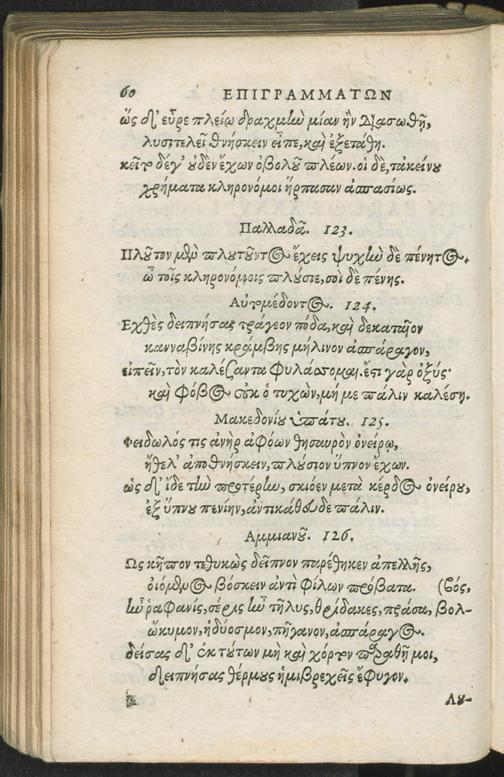 60 ΕΠΙΓΡΑΜΜΑΤΩΝ
ὡς δ' εὗρε πλείω δραχμὴν μίαν ἢν διασωθῇ,
λυσιτελεῖ θνήσκειν εἶπε, καὶ ἐξετάθη.
κεῖτο δέγ' οὐδὲν ἔχων ὀβολοῦ πλέων. οἱ δὲ, τὰ κείνου
χρήματα κληρονόμοι ἥρπασαν ἀσπασίως.
Παλλαδᾶ. 123.
Πλοῦτον μὲν πλουτοῦντος ἔχεις ψυχὴν δὲ πένητος.
ὦ τοῖς κληρονόμοις πλούσιε, σοὶ δὲ πένης.
Αὐτομέδοντος. 124.
Εχθὲς δειπνήσας τράγεον πόδα, καὶ δεκαταῖον
κανναβίνης κράμβης μήλινον ἀσπάραγον,
εἰπεῖν, τὸν καλέσαντα φυλάσσομαι. ἔστι γὰρ ὀξύς·
καὶ φόβος οὐκ ὁ τυχὼν, μή με πάλιν καλέσῃ.
Μακεδονίου ὑπάτου. 125.
Φειδωλός τις ἀνὴρ ἀφόων θησαυρὸν ὀνείρῳ,
ἤθελ' ἀποθνήσκειν, πλούσιον ὕπνον ἔχων.
ὡς δ' ἴδε τὴν προτέρην, σκιόεν μετὰ κέρδος ὀνείρου,
ἐξ ὕπνου πενίην, ἀντικάθευδε πάλιν.
Αμμιανοῦ. 126.
Ως κῆπον τεθυκὼς δεῖπνον παρέθηκεν ἀπελλῆς,
οἰόμενος βόσκειν ἀντὶ φίλων πρόβατα. (βός,
ἦν ῥαφανὶς, σέρις ἦν τῆλυς, θρίδακες, πράσα, βολ-
ὤκυμον, ἡδύοσμον, πήγανον, ἀσπάραγος.
δείσας δ' ἐκ τούτων μὴ καὶ χόρτον παραθῇ μοι,
δειπνήσας θέρμους ἡμιβρεχεῖς ἔφυγον.
Λου-